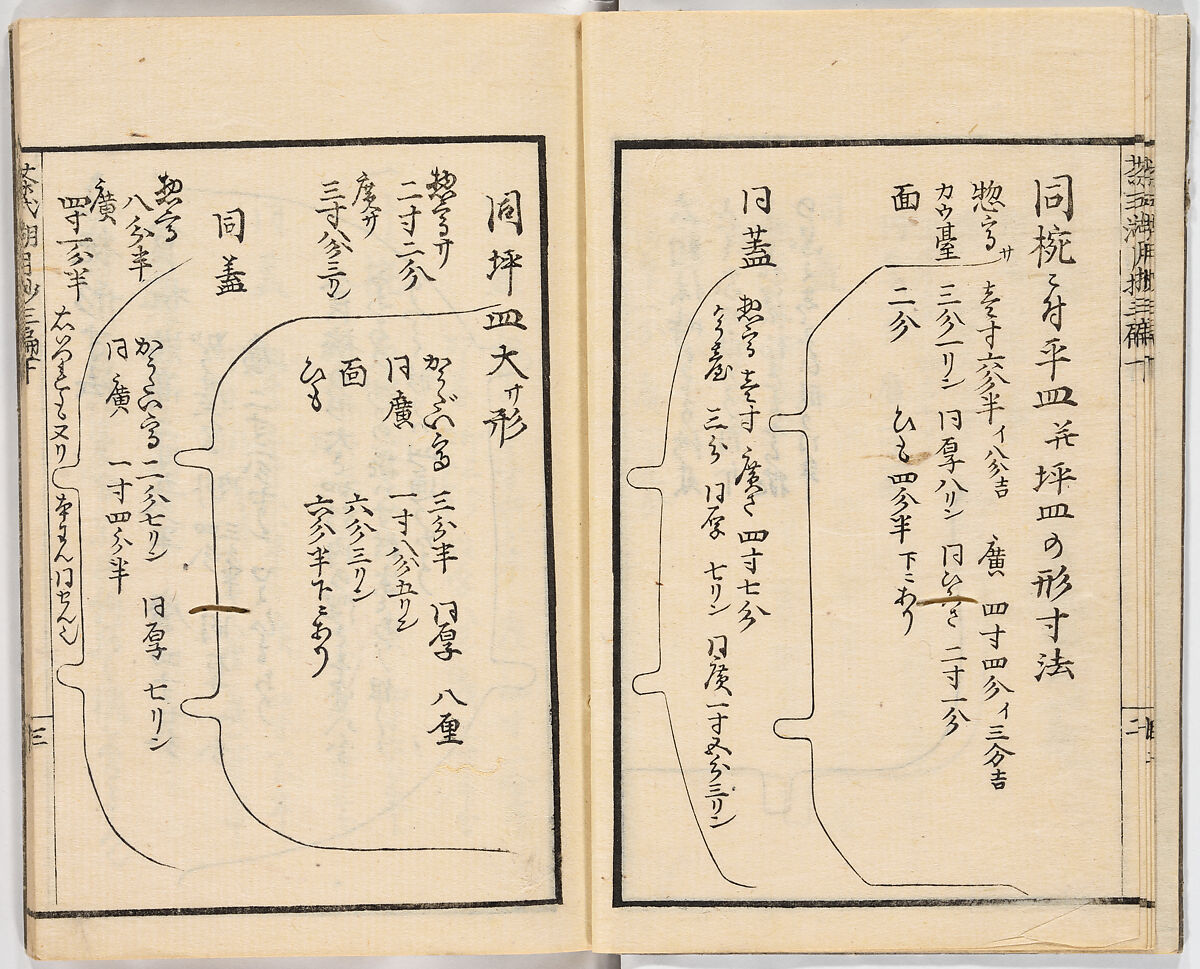 同椀ニ付平皿并坪皿の形寸法
惣高サ 壱寸六分半 イ八分吉 廣 四寸四分 イ三分吉
カウ臺 三分一リン 同厚八リン 同ひろさ 二寸一分
面 二分 ひも 四分半 下ニあり
同蓋
惣高 壱寸 廣さ 四寸七分
かう臺 三分 同厚 七リン 同廣 一寸五分三リン
同坪皿大サ形
惣高サ
二寸二分
廣サ
三寸八分三リン
かうだい高 三分半 同厚 八厘
同廣 一寸八分五リン
面 六分三リン
ひも 六分半 下ニあり
同蓋
惣高
八分半
廣
四寸一分半
かうたい高 二分七リン 同厚 七リン
同廣 一寸四分半
三
二